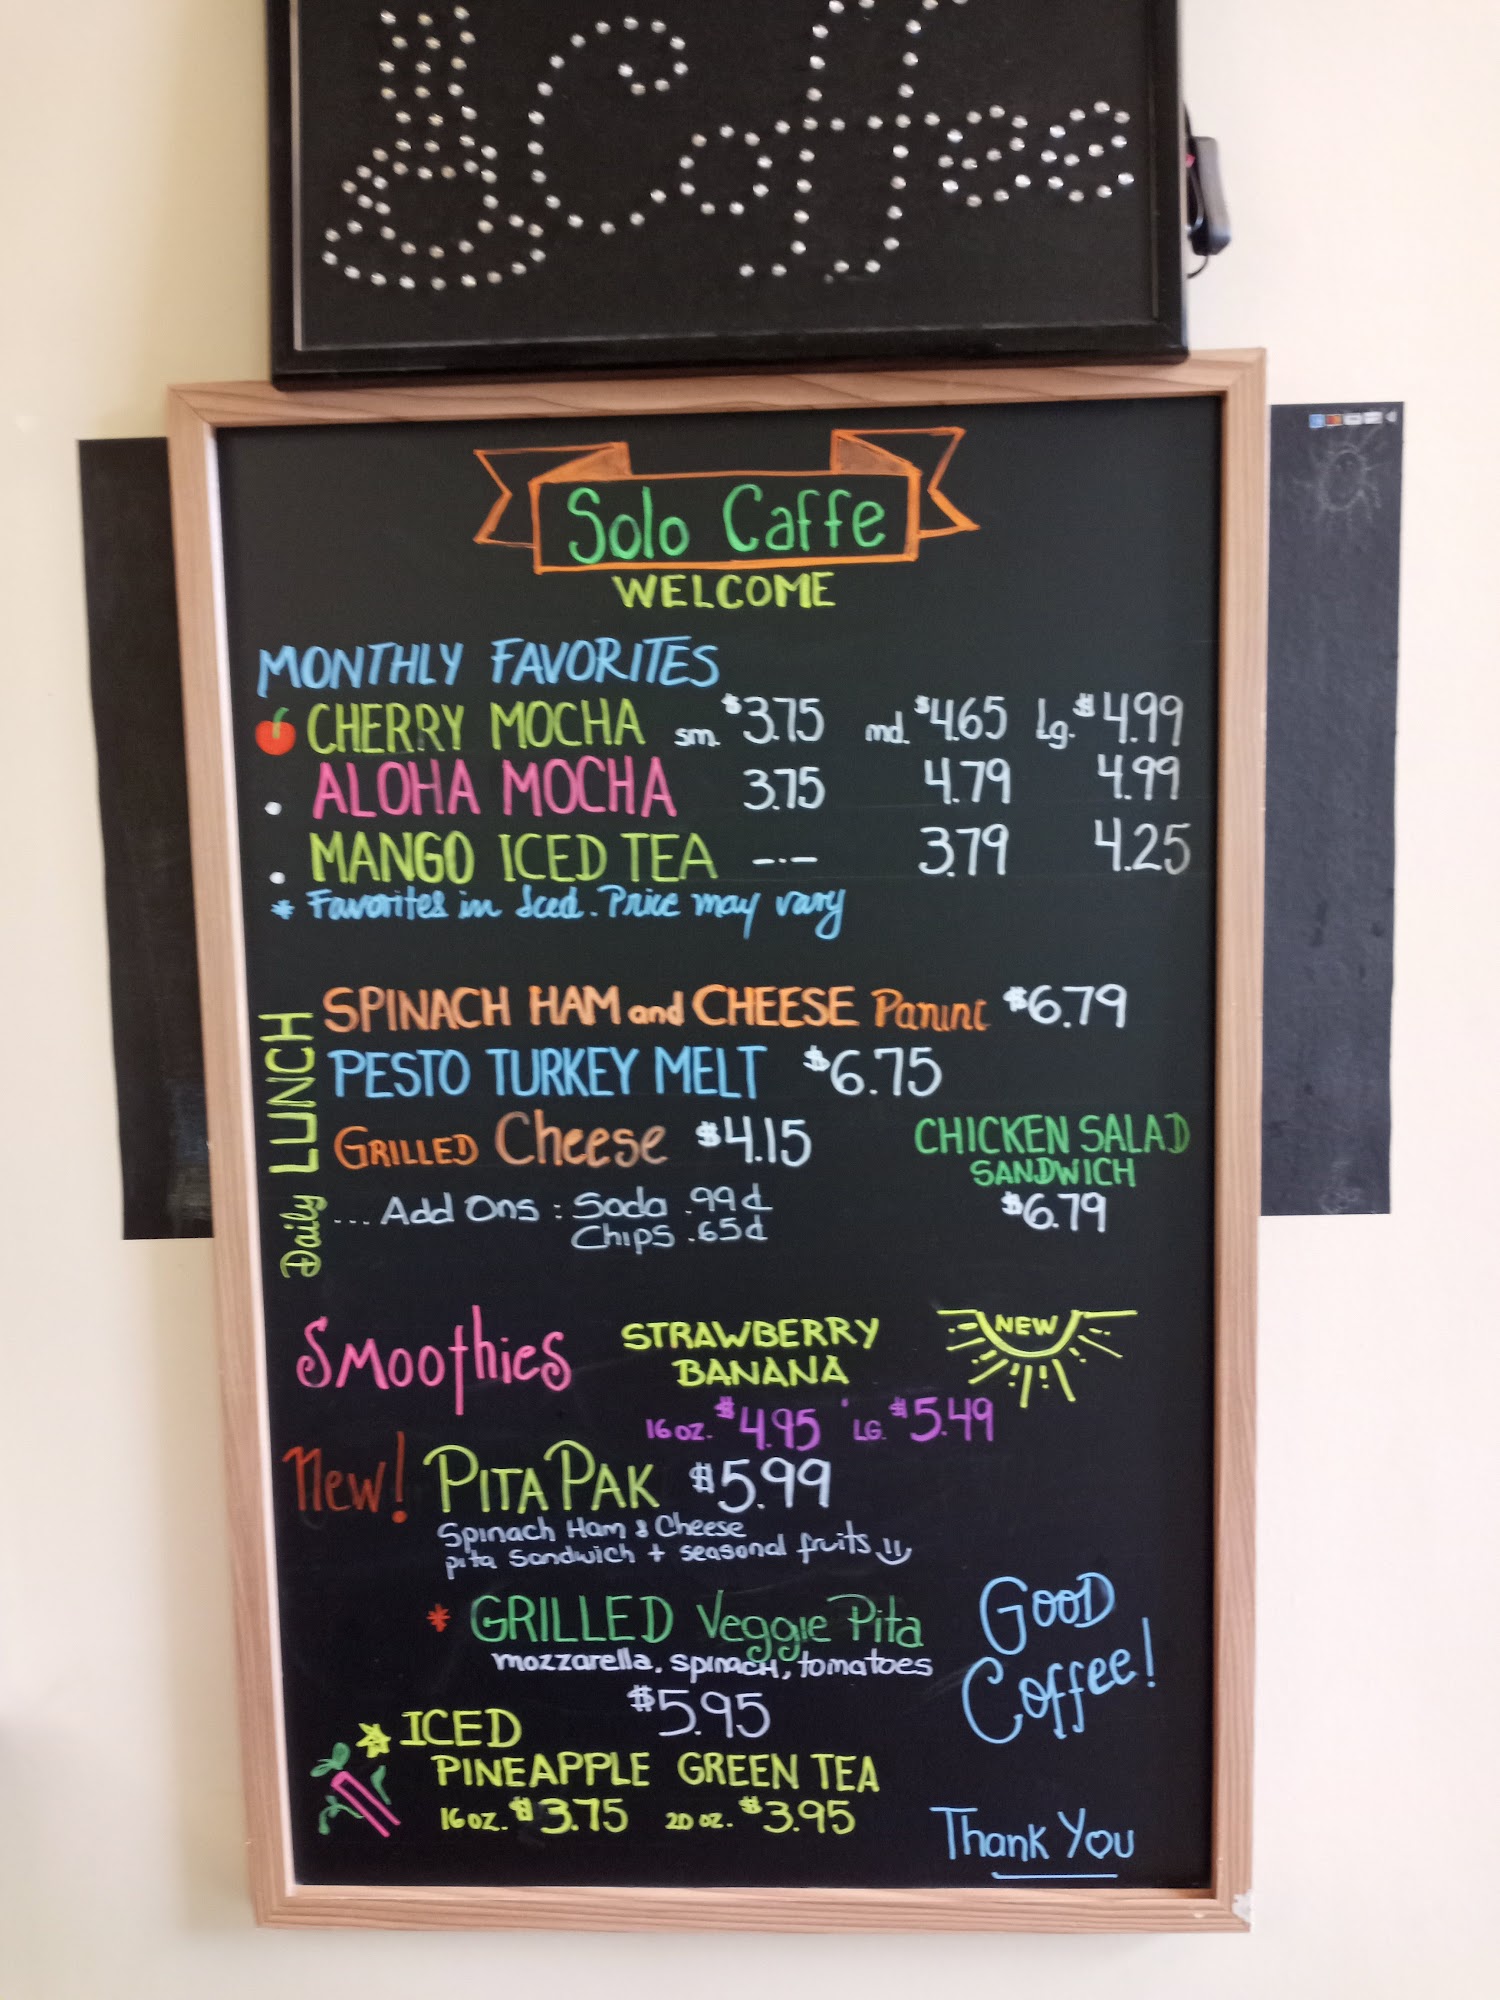 Coffee
Solo Caffe
WELCOME
MONTHLY FAVORITES
CHERRY MOCHA sm. $3.75 md. $4.65 Lg. $4.99
ALOHA MOCHA 3.75 4.79 4.99
MANGO ICED TEA -.- 3.79 4.25
* Favorites in Iced. Price may vary
Daily LUNCH
SPINACH HAM and CHEESE Panini $6.79
PESTO TURKEY MELT $6.75
GRILLED Cheese $4.15
... Add Ons : Soda .99¢
Chips .65¢
CHICKEN SALAD
SANDWICH
$6.79
Smoothies
STRAWBERRY
BANANA
NEW
16 oz. $4.95 LG. $5.49
New! PITA PAK $5.99
Spinach Ham & Cheese
pita Sandwich + seasonal fruits
* GRILLED Veggie Pita
mozzarella, spinach, tomatoes
$5.95
GOOD
Coffee!
ICED
PINEAPPLE GREEN TEA
16 oz. $3.75 20 oz. $3.95
Thank You